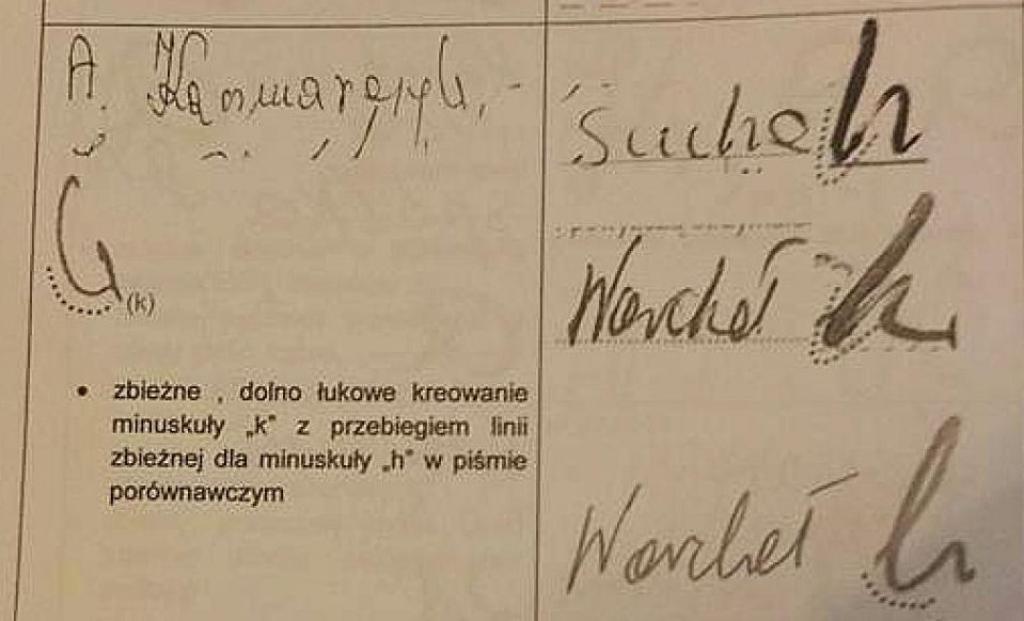 A.
(k)
• zbieżne , dolno łukowe kreowanie
minuskuły „k” z przebiegiem linii
zbieżnej dla minuskuły „h” w piśmie
porównawczym
h
Warchał
h
Warchał
h